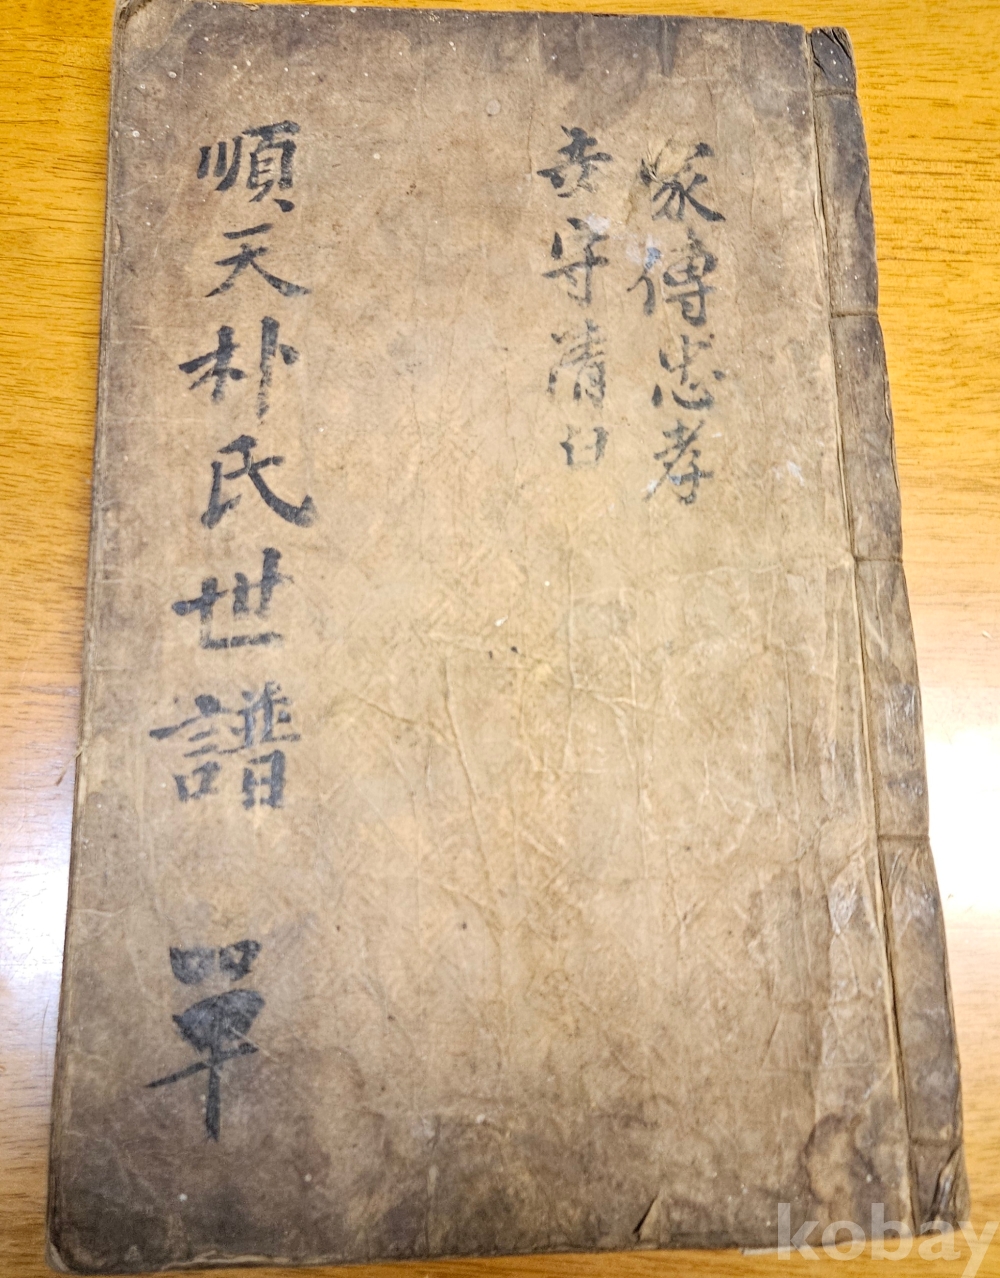 家傳忠孝
世守清白
順天朴氏世譜 單
kobay